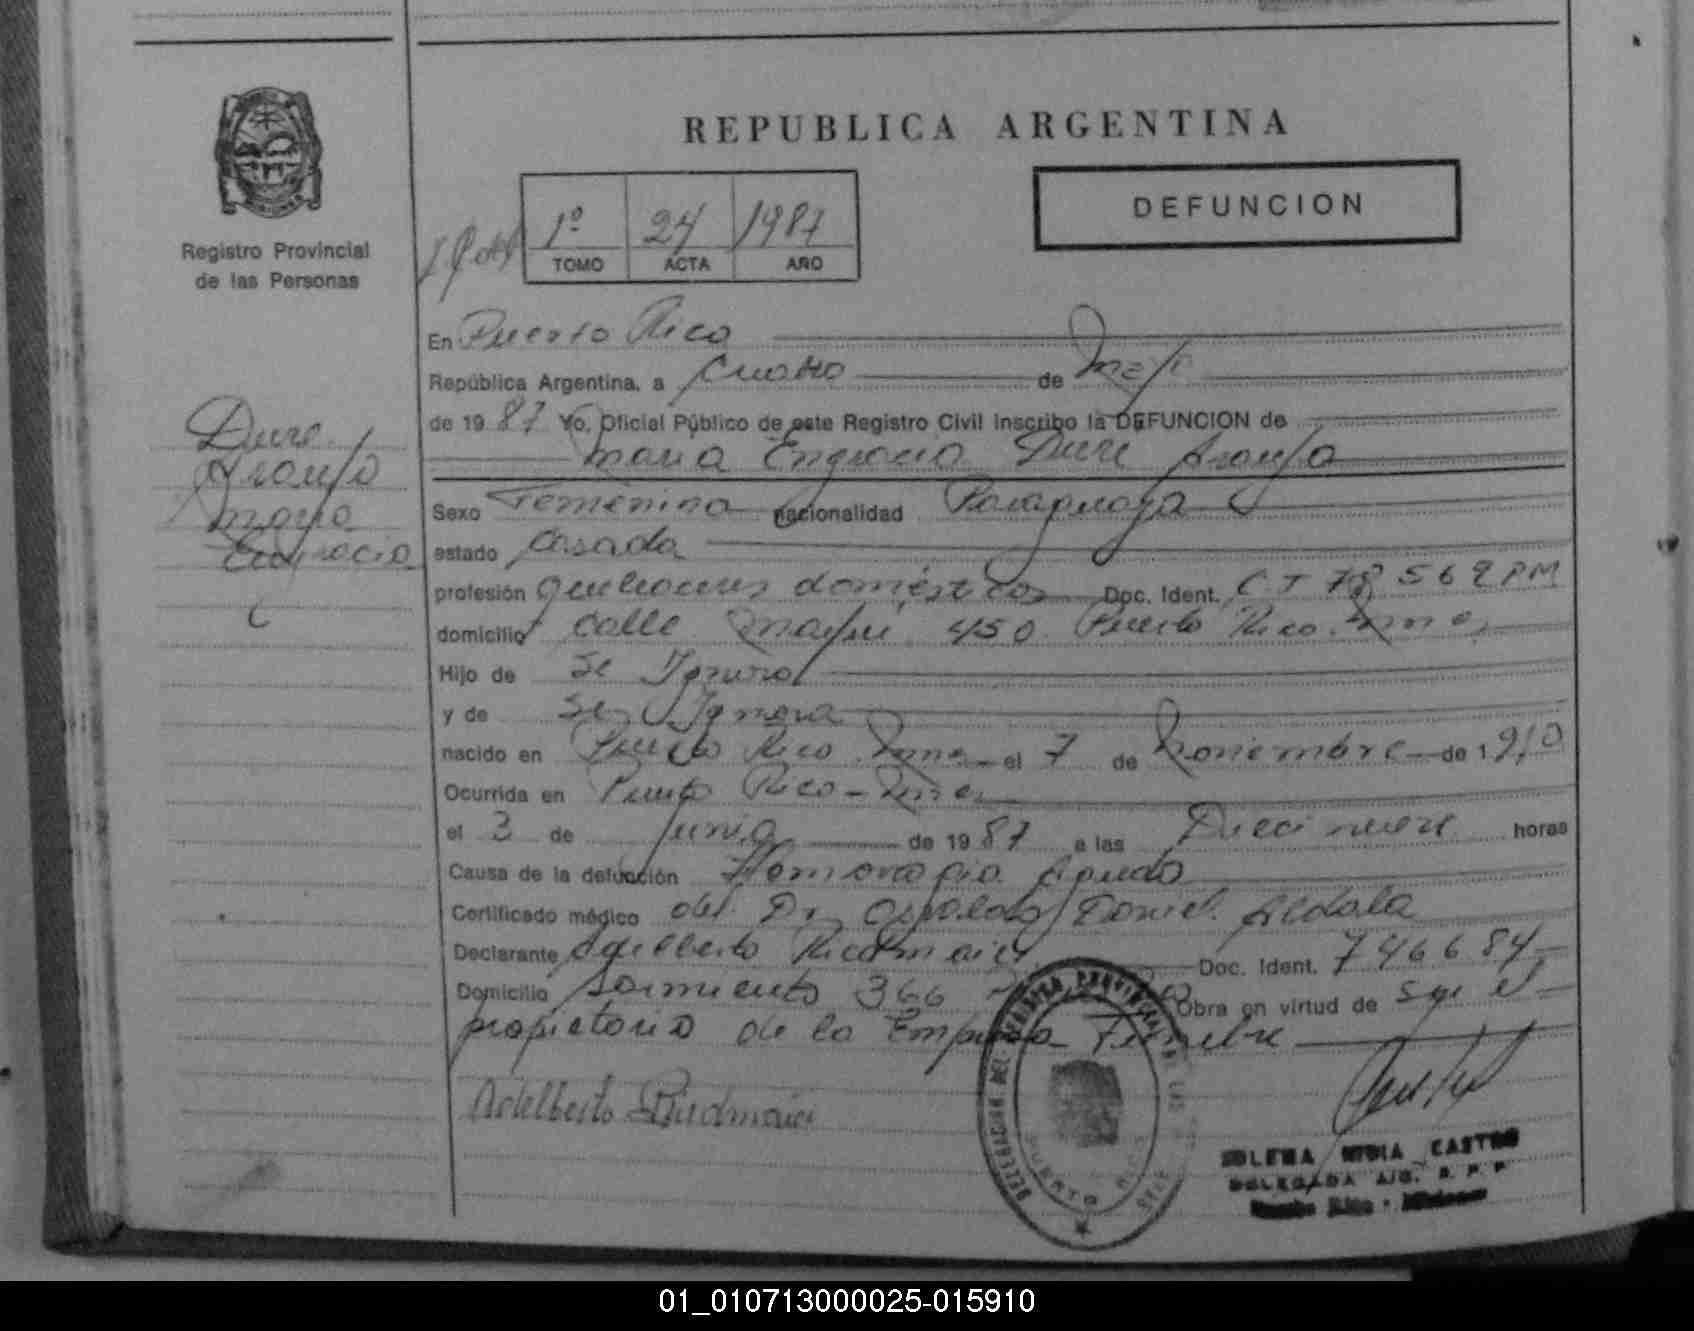 REPUBLICA ARGENTINA
DEFUNCION
1º 24 1987
TOMO ACTA AÑO
Registro Provincial
de las Personas
En Puerto Rico
República Argentina, a Cuatro de
de 1987 Yo, Oficial Público de este Registro Civil inscribo la DEFUNCION de
Maria Engracia Dure Araujo
Dure
Araujo
Maria
Engracia
Sexo Femenino nacionalidad Paraguaya
estado Casada
profesión quehaceres domésticos Doc. Ident. C I 78 569 PM
domicilio calle Maipú 450 Puerto Rico Mnes
Hijo de Se Ignora
y de Se Ignora
nacido en Puerto Rico Mnes el 7 de Noviembre de 1910
Ocurrida en Puerto Rico - Mnes
el 3 de Junio de 1987 a las Diecinueve horas
Causa de la defunción Hemorragia Aguda
Certificado médico del Dr Osvaldo Daniel Aldala
Declarante Adelberto Doc. Ident. 746684
Domicilio Sarmiento 366 Obra en virtud de Ser el
propietario de la Empresa Funebre
Adelberto
DELEGACION DEL REGISTRO PROVINCIAL DE LAS
PUERTO RICO
CASTRO
DELEGADA
Puerto Rico - Misiones
01_010713000025-015910